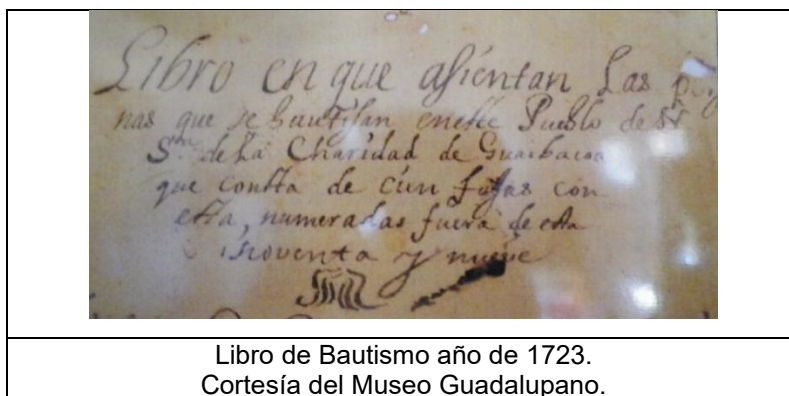 Libro en que asientan Las
nas que se bautisan eneste Pueblo de
Sra. de La Charidad de Guaibacoa
que consta de cien fojas con
esta, numeradas fuera de esta
noventa y nueve
Libro de Bautismo año de 1723.
Cortesía del Museo Guadalupano.